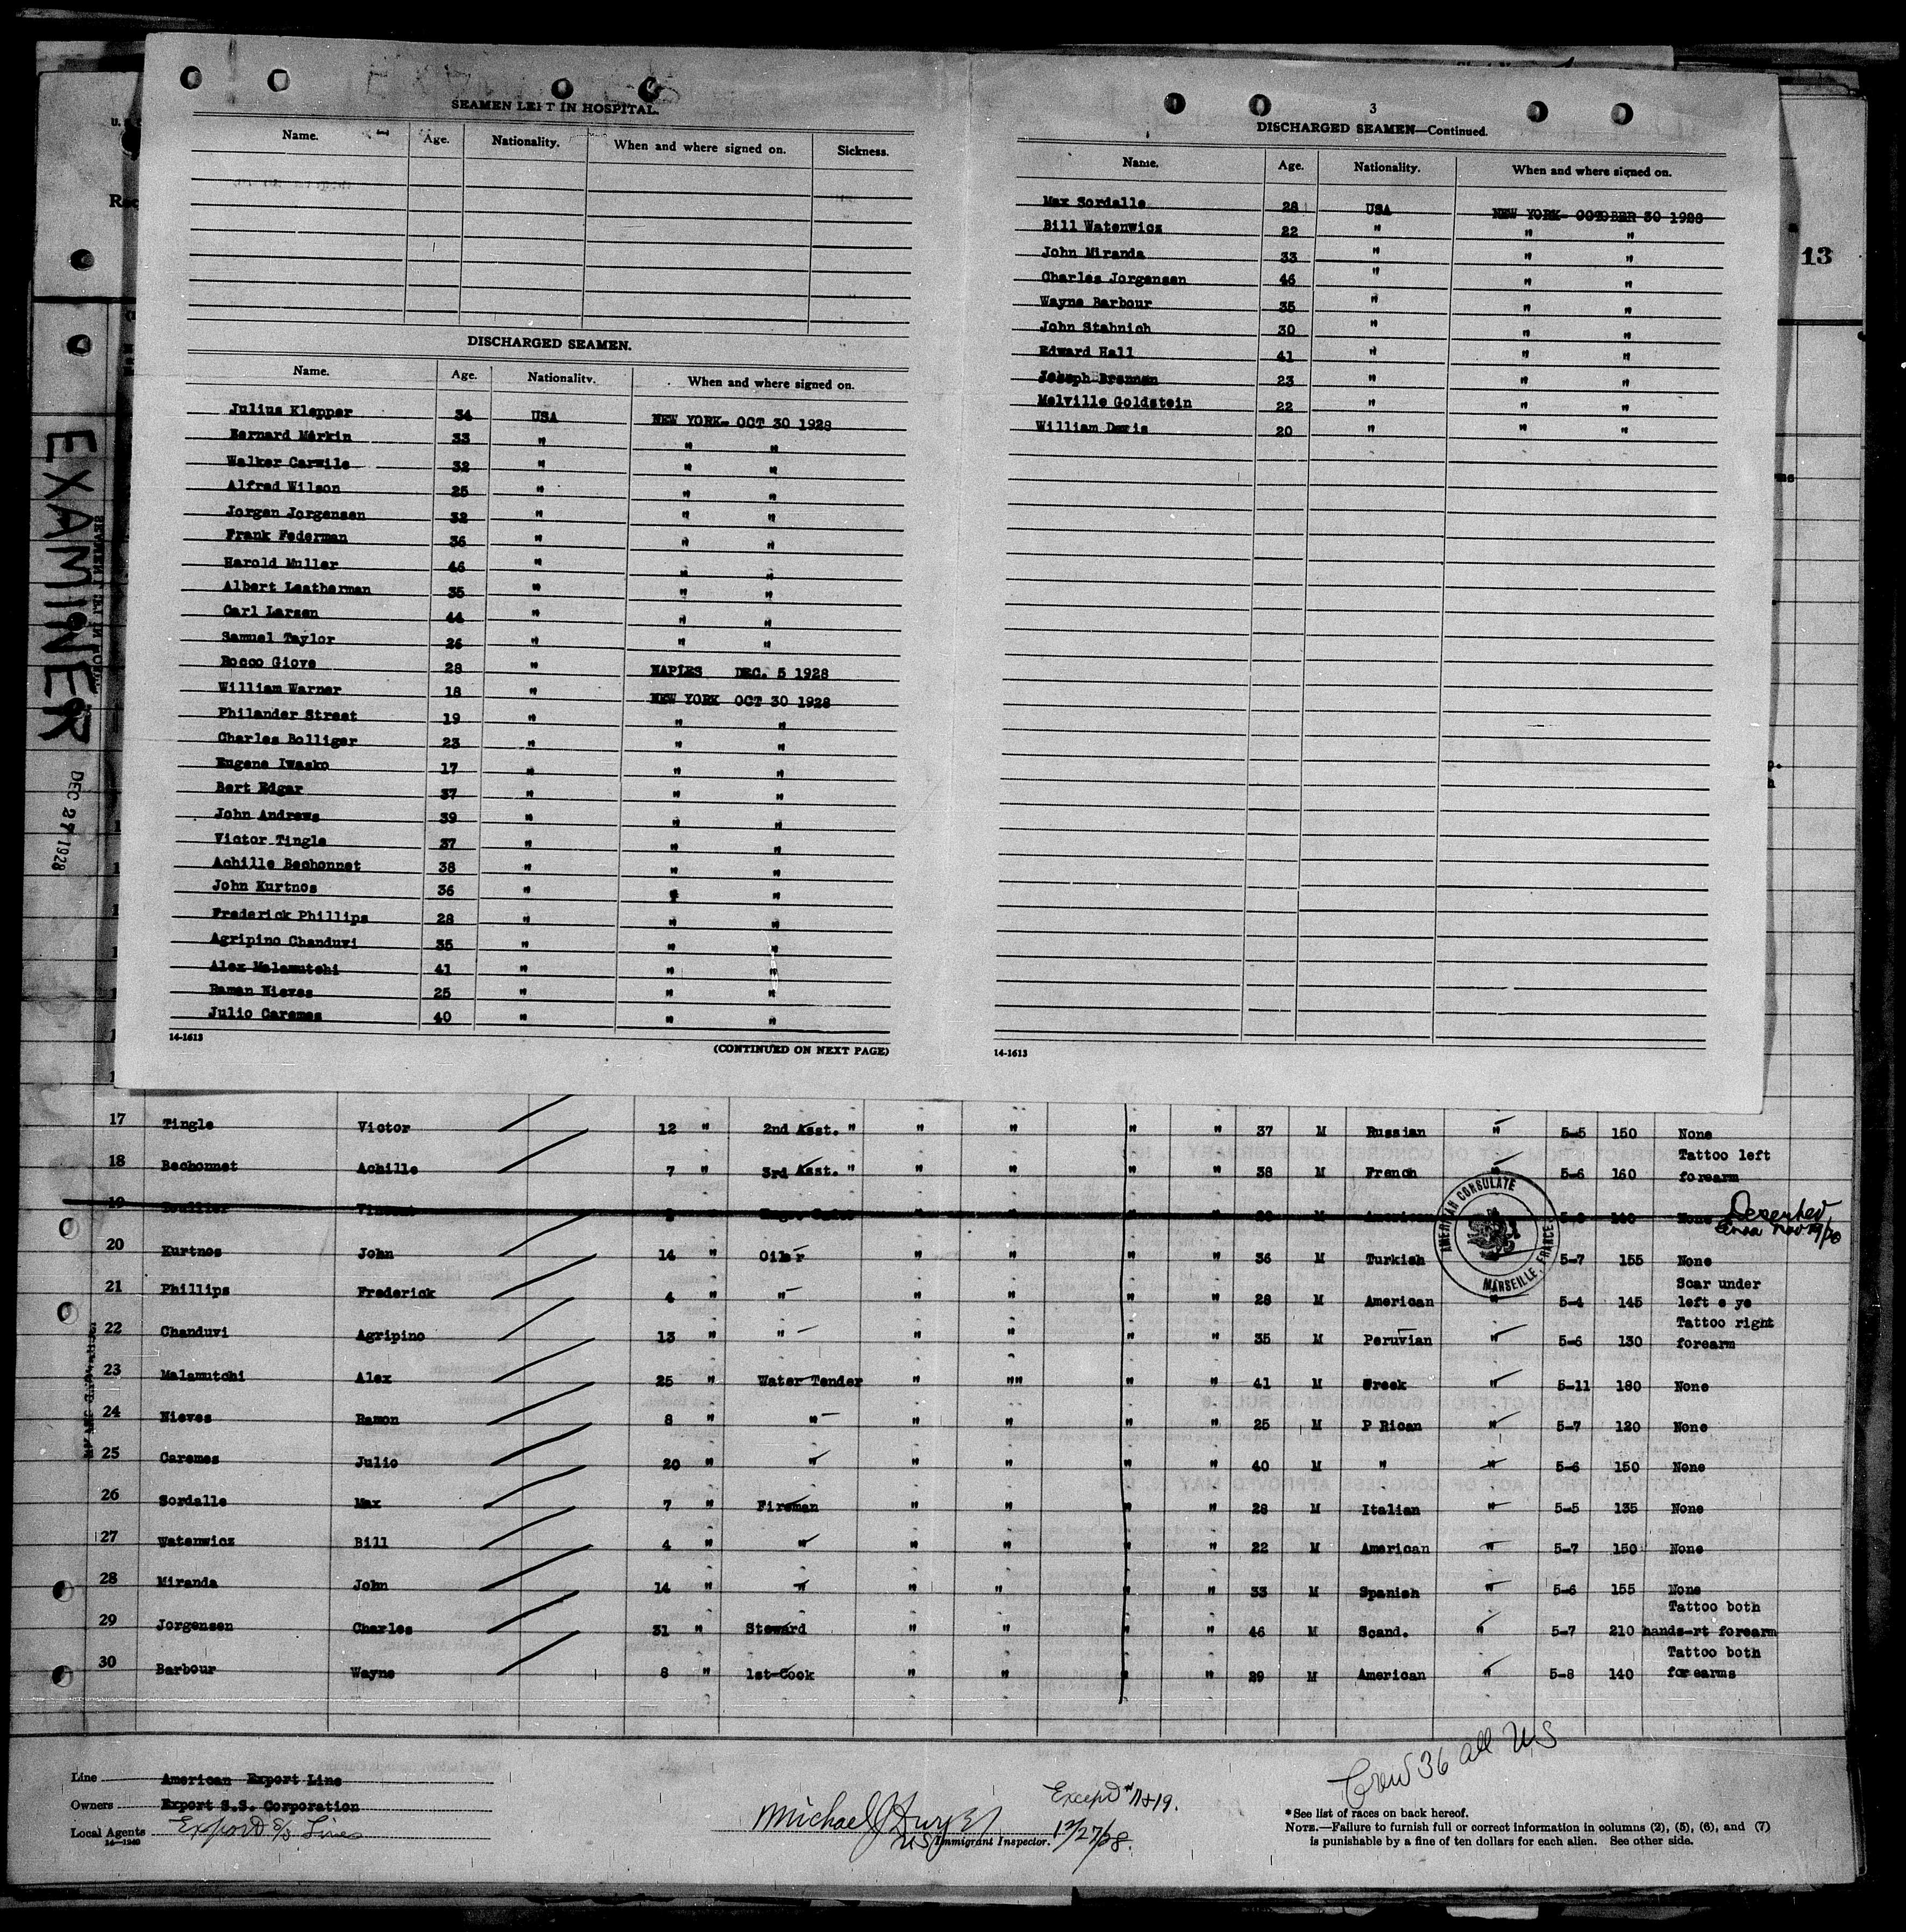 SEAMEN LEFT IN HOSPITAL.
Name. Age. Nationality. When and where signed on. Sickness.
DISCHARGED SEAMEN.
Name. Age. Nationality. When and where signed on.
Julius Klepper 34 USA NEW YORK- OCT 30 1928
Bernard Markin 33 " " "
Walker Carwile 32 " " "
Alfred Wilson 25 " " "
Jorgen Jorgensen 32 " " "
Frank Federman 36 " " "
Harold Muller 46 " " "
Albert Leatherman 35 " " "
Carl Larsen 44 " " "
Samuel Taylor 26 " " "
Rocco Giove 28 " NAPLES DEC. 5 1928
William Warner 18 " NEW YORK OCT 30 1928
Philander Street 19 " " "
Charles Bolliger 23 " " "
Eugene Iwasko 17 " " "
Bert Edgar 37 " " "
John Andrews 39 " " "
Victor Tingle 37 " " "
Achille Bechonnet 38 " " "
John Kurtnos 36 " " "
Frederick Phillips 28 " " "
Agripino Chanduvi 35 " " "
Alex Malamutchi 41 " " "
Ramon Nieves 25 " " "
Julio Caremes 40 " " "
14-1613
(CONTINUED ON NEXT PAGE)
3
DISCHARGED SEAMEN—Continued.
Name. Age. Nationality. When and where signed on.
Max Sordalle 28 USA NEW YORK- OCTOBER 30 1928
Bill Watenwicz 22 " " "
John Miranda 33 " " "
Charles Jorgensen 46 " " "
Wayne Barbour 35 " " "
John Stahnich 30 " " "
Edward Hall 41 " " "
Joseph Brennan 23 " " "
Melville Goldstein 22 " " "
William Davis 20 " " "
14-1613
13
EXAMINER
DEC 27 1928
17 Tingle Victor 12 " 2nd Asst. " " " " " 37 M Russian " 5-5 150 None
18 Bechonnet Achille 7 " 3rd Asst. " " " " " 38 M French " 5-6 160 Tattoo left
forearm
19 Vincent M American None Deserted
20 Kurtnos John 14 " Oiler " " " " 36 M Turkish 5-7 155 None
21 Phillips Frederick 4 " " " " " " 28 M American " 5-4 145 Scar under
left e ye
22 Chanduvi Agripino 13 " " " " " " 35 M Peruvian " 5-6 130 Tattoo right
forearm
23 Malamutchi Alex 25 " Water Tender " "" " " 41 M Greek " 5-11 180 None
24 Nieves Ramon 8 " " " " " " 25 M P Rican " 5-7 120 None
25 Caremes Julio 20 " " " " " " 40 M " " 5-6 150 None
26 Sordalle Max 7 " Fireman " " " " 28 M Italian " 5-5 135 None
27 Watenwicz Bill 4 " " " " " " 22 M American " 5-7 150 None
28 Miranda John 14 " " " " " " 33 M Spanish " 5-6 155 None
29 Jorgensen Charles 31 " Steward " " " " 46 M Scand. " 5-7 210 Tattoo both
hands-rt forearm
30 Barbour Wayne 8 " 1st-Cook " " " " 29 M American " 5-8 140 Tattoo both
forearms
AMERICAN CONSULATE
MARSEILLE, FRANCE
Crew 36 all US
Except # 11 & 19.
Line American Export Line
Owners Export S.S. Corporation
Local Agents Export S/S Lines
14-1240
Michael J
US Immigrant Inspector. 12/27/28.
*See list of races on back hereof.
NOTE.—Failure to furnish full or correct information in columns (2), (5), (6), and (7)
is punishable by a fine of ten dollars for each alien. See other side.